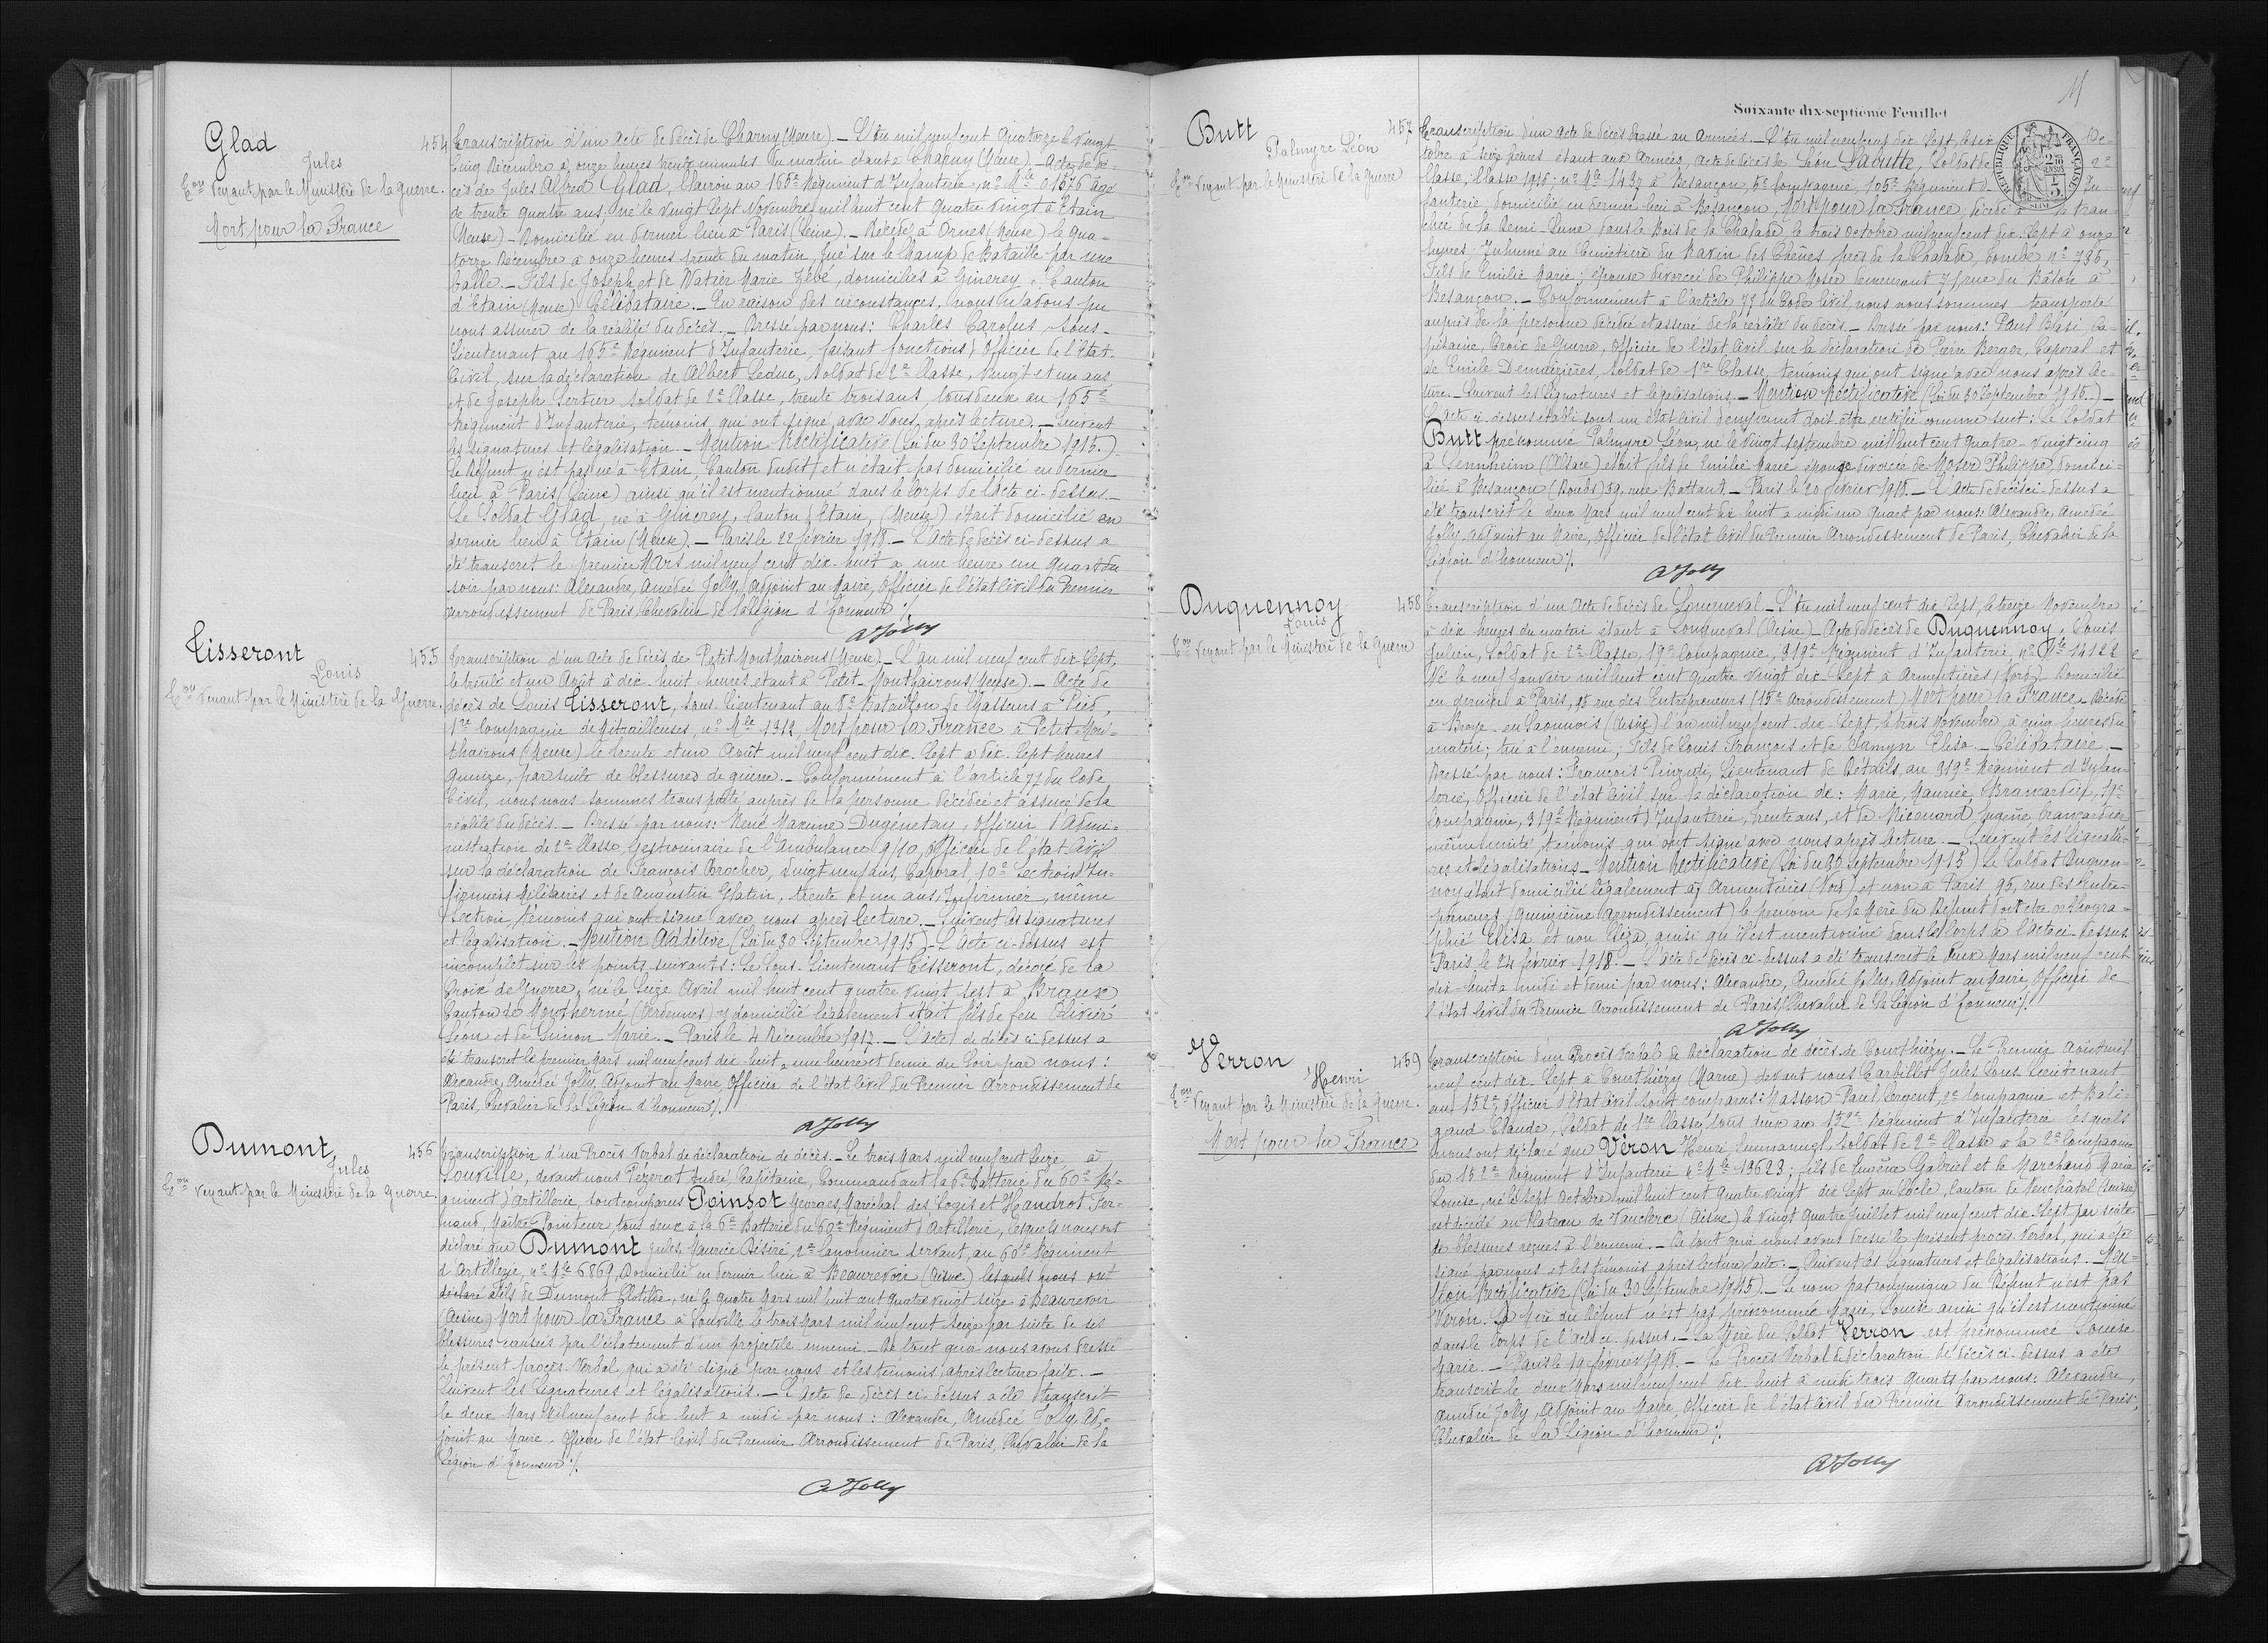 Glad
Jules
Ton venant par le Ministère de la Guerre.
Mort pour la France
454 Transcription d'un acte de décès de Charny (Meuse). — L'an mil neuf cent quatorze le vingt
cinq Décembre à onze heures trente minutes du matin étant à Charny (Meuse). — Acte de dé-
cès de Jules Alfred Glad, Clairon au 165e Régiment d'Infanterie, no Mle 01576 âgé
de trente quatre ans, né le vingt sept Novembre mil huit cent quatre vingt à Etain
(Meuse) - Domicilié en dernier lieu à Paris (Seine). — Décédé à Ornes (Meuse) le qua-
torze Décembre à onze heures trente du matin, tué sur le champ de Bataille par une
balle. — Fils de Joseph et de Watier Marie Zébé, domiciliés à Gincrey, Canton
d'Etain (Meuse) Célibataire. — En raison des circonstances, nous n'avons pu
nous assurer de la réalité du décès. — Dressé par nous: Charles Carolus Sous-
Lieutenant au 165e Régiment d'Infanterie, faisant fonctions d'Officier de l'Etat
Civil, sur la déclaration de Albert Leduc, Soldat de 2e Classe, vingt et un ans
et de Joseph Sertier soldat de 2e Classe, trente trois ans, tous deux au 165e
Régiment d'Infanterie, témoins, qui ont signé avec Nous, après lecture. — Suivent
les signatures et légalisation — Mention Rectificative (Loi du 30 Septembre 1915.)
Le Défunt n'est pas né à Etain, Canton dudit, et n'était pas domicilié en dernier
lieu à Paris (Seine) ainsi qu'il est mentionné dans le Corps de l'acte ci-dessus. —
Le Soldat Glad, né à Gincrey, Canton d'Etain, (Meuse) était domicilié en
dernier lieu à Etain (Meuse). — Paris le 22 février 1918. — L'Acte de décès ci-dessus a
été transcrit le premier Mars mil neuf cent dix-huit à une heure un quart du
soir par nous: Alexandre, Amédée Jolly, Adjoint au Maire, Officier de l'état civil du Premier
arrondissement de Paris, Chevalier de la Légion d'honneur ./.
AJolly
Tisseront
Louis
Ton venant par le Ministère de la Guerre.
455 Transcription d'un acte de décès de Petit Monthairons (Meuse). — L'an mil neuf cent dix-Sept,
le trente et un Août à dix-huit heures, étant à Petit-Monthairons (Meuse). — Acte de
décès de Louis Tisseront, Sous-Lieutenant au 8e Bataillon de Chasseurs à Pied,
1re Compagnie de Mitrailleuses, no Mle 1312, Mort pour la France à Petit-Mon-
thairons (Meuse) le trente et un Août mil neuf cent dix-Sept à dix-Sept heures
quinze, par suite de blessures de guerre. — Conformément à l'article 77 du Code
Civil, nous nous sommes transporté auprès de la personne décédée et assuré de la
réalité du décès. — Dressé par nous: René Maxime Dugénetay, Officier d'Admi-
nistration de 2e Classe, Gestionnaire de l'ambulance 9/10, Officier de l'état civil
sur la déclaration de François Brocher, vingt neuf ans, Caporal, 10e Section d'In-
firmiers Militaires et de Augustin Glatin, trente et un ans, Infirmier, même
Section, témoins qui ont signé avec nous après lecture. — Suivent les signatures
et légalisation. — Mention Additive (Loi du 30 Septembre 1915) - L'Acte ci-dessus est
incomplet sur les points suivants: Le Sous-Lieutenant Tisseront, décoré de la
Croix de Guerre, né le Seize Avril mil huit cent quatre vingt sept à Braux
Canton de Monthermé (Ardennes) y domicilié légalement était fils de feu Olivier
Léon et de Guinon Marie. — Paris le 4 Décembre 1917. — L'acte de décès ci-dessus a
été transcrit le premier Mars mil neuf cent dix-huit, à une heure et demie du Soir par nous:
Alexandre, Amédée Jolly, Adjoint au Maire, Officier de l'état civil du Premier Arrondissement de
Paris, Chevalier de la Légion d'honneur ./.
AJolly
Dumont
Jules
Ton venant par le Ministère de la Guerre.
456 Transcription d'un Procès Verbal de déclaration de décès. — Le trois Mars mil neuf cent Seize à
Souville, devant nous Pézerat André, Capitaine, Commandant la 6e Batterie du 60e Ré-
giment d'artillerie, sont comparus Poinsot Georges, Maréchal des Logis et Handrot Fer-
nand, Maître Pointeur, tous deux à la 6e Batterie du 60e Régiment d'Artillerie, lesquels nous ont
déclaré que Dumont Jules Maurice Désiré, 2e Canonnier Servant, au 60e Régiment
d'Artillerie, no Mle 6869, Domicilié en dernier lieu à Beaurevoir (Aisne) lesquels nous ont
déclaré Fils de Dumont Clotilde, né le quatre Mars mil huit cent quatre vingt seize à Beaurevoir
(Aisne) Mort pour la France à Souville le trois Mars mil neuf cent Seize par suite de ses
blessures causées par l'éclatement d'un projectile ennemi. — De tout quoi nous avons dressé
le présent procès-verbal, qui a été signé par nous et les témoins, après lecture faite. —
Suivent les Signatures et légalisations. — L'Acte de décès ci-dessus a été transcrit
le deux Mars mil neuf cent dix huit à midi par nous: Alexandre, Amédée Jolly, Ad-
joint au Maire, Officier de l'état civil du Premier Arrondissement de Paris, Chevalier de la
Légion d'honneur ./.
AJolly
Soixante dix-septième Feuillet
Butt
Palmyre Léon
Ton venant par le Ministère de la Guerre
457 Transcription d'un acte de décès dressé aux Armées. — L'an mil neuf cent dix Sept, le six Oc-
tobre à seize heures étant aux Armées, acte de décès de Léon Labutte, Soldat de 2e
Classe, Classe 1916, no Mle 1437 à Besançon, 5e Compagnie, 105e Régiment d'In-
fanterie, domicilié en dernier lieu à Besançon, Mort pour la France, décédé à la tran-
chée de la Demi-Lune dans le Bois de la Chalade le trois Octobre mil neuf cent dix-Sept à onze
heures; Inhumé au Cimetière du Ravin des Chênes près de la Chalade, tombe no 736,
Fils de Emilie Marie; épouse divorcée de Philippe Moser demeurant 7, rue du Bâton à
Besançon. — Conformément à l'article 77 du Code Civil, nous nous sommes transporté
auprès de la personne décédée et assuré de la réalité du décès. — Dressé par nous: Paul Blasi, Ca-
pitaine, Croix de Guerre, Officier de l'état civil sur la déclaration de Pierre Berger, Caporal et
de Emile Demézières, Soldat de 1re Classe, témoins qui ont signé avec nous après lec-
ture. — Suivent les Signatures et légalisations. — Mention Rectificative (Loi du 30 Septembre 1915.) —
L'Acte ci-dessus établi sous un état civil d'emprunt doit être rectifié comme suit: Le Soldat
Butt prénommé Palmyre Léon, né le vingt septembre mil huit cent quatre-vingt cinq
à Sennheim (Alsace) était fils de Emilie Marie épouse divorcée de Moser Philippe, domici-
lié à Besançon (Doubs) 39, rue Battant. — Paris le 20 février 1918. — L'Acte de décès ci-dessus a
été transcrit le deux Mars mil neuf cent dix huit à midi un quart par nous: Alexandre, Amédée
Jolly, adjoint au Maire, Officier de l'état civil du Premier Arrondissement de Paris, Chevalier de la
Légion d'honneur ./.
AJolly
Duquennoy
Louis
Ton venant par le Ministère de la Guerre
458 Transcription d'un acte de décès de Longueval — L'an mil neuf cent dix Sept, le treize Novembre
à dix heures du matin étant à Longueval (Aisne) — Acte de décès de Duquennoy, Louis
Julien, Soldat de 2e Classe, 19e Compagnie, 319e Régiment d'Infanterie no Mle 14122
Né le neuf Janvier mil huit cent quatre vingt dix Sept à Armentières (Nord). Domicilié
en dernier à Paris, 95 rue des Entrepreneurs (15e arrondissement) Mort pour la France. — Décédé
à Braye-en-Laonnois (Aisne) l'an mil neuf cent dix-Sept, le trois Novembre, à cinq heures du
matin; tué à l'ennemi; Fils de Louis François et de Jamyn Elisa. — Célibataire. —
Dressé par nous: François Pinzuti, Lieutenant de Détails, au 319e Régiment d'Infan-
terie, Officier de l'état civil sur la déclaration de: Marie, Maurice, Brancardier, 19e
Compagnie, 319e Régiment d'Infanterie, trente ans, et de Ricouard Eugène, brancardier
même unité, témoins qui ont signé avec nous après lecture. — Suivent les Signatu-
res et légalisations — Mention Rectificative (Loi du 30 Septembre 1915) Le Soldat Duquen-
noy était domicilié légalement à Armentières (Nord) et non à Paris 95, rue des Entre-
preneurs (quinzième arrondissement) le prénom de la mère du Défunt doit être orthogra-
phié Elisa et non Eliza, ainsi qu'il est mentionné dans le Corps de l'acte ci-dessus.
Paris le 24 février 1918. — L'acte de décès ci-dessus a été transcrit le deux Mars mil neuf cent
dix-huit à midi et demi par nous: Alexandre, Amédée Jolly, Adjoint au Maire, Officier de
l'état civil du Premier Arrondissement de Paris, Chevalier de la Légion d'honneur ./.
AJolly
Verron
Henri
Ton venant par le Ministère de la Guerre.
Mort pour la France
459 Transcription d'un Procès Verbal de Déclaration de décès de Courthiézy. — Le Premier Août mil
neuf cent dix-Sept à Courthiézy (Marne) devant nous Barbillet Jules Sous-Lieutenant
au 152e, Officier d'état civil sont comparus: Masson Paul, Sergent, 2e Compagnie et Bali-
gand Claude, Soldat de 1re Classe, tous deux au 152e Régiment d'Infanterie lesquels
nous ont déclaré que Véron Henri Emmanuel, Soldat de 2e Classe à la 2e Compagnie
du 152e Régiment d'Infanterie no Mle 13623; fils de Eugène Gabriel et de Marchand Maria
Louise, né le Sept Octobre mil huit cent quatre vingt dix Sept au Locle, Canton de Neuchâtel (Suisse)
est décédé au Plateau de Vauclerc (Aisne) le vingt quatre Juillet mil neuf cent dix-Sept par suite
de blessures reçues à l'ennemi. — De tout quoi nous avons dressé le présent procès verbal, qui a été
signé par nous et les témoins après lecture faite. — Suivent les Signatures et légalisations. — Men-
tion Rectificative (Loi du 30 Septembre 1915). — Le nom patronymique du Défunt n'est pas
Véron. La mère du Défunt n'est pas prénommée Marie, Louise ainsi qu'il est mentionné
dans le Corps de l'acte ci-dessus. — La Mère du Soldat Verron est prénommée Louise
Marie. — Paris le 19 février 1918. — Le Procès Verbal de déclaration de décès ci-dessus a été
transcrit le deux Mars mil neuf cent dix-huit à midi trois quarts par nous: Alexandre,
Amédée Jolly, Adjoint au Maire, Officier de l'état civil du Premier Arrondissement de Paris,
Chevalier de la Légion d'honneur ./.
AJolly